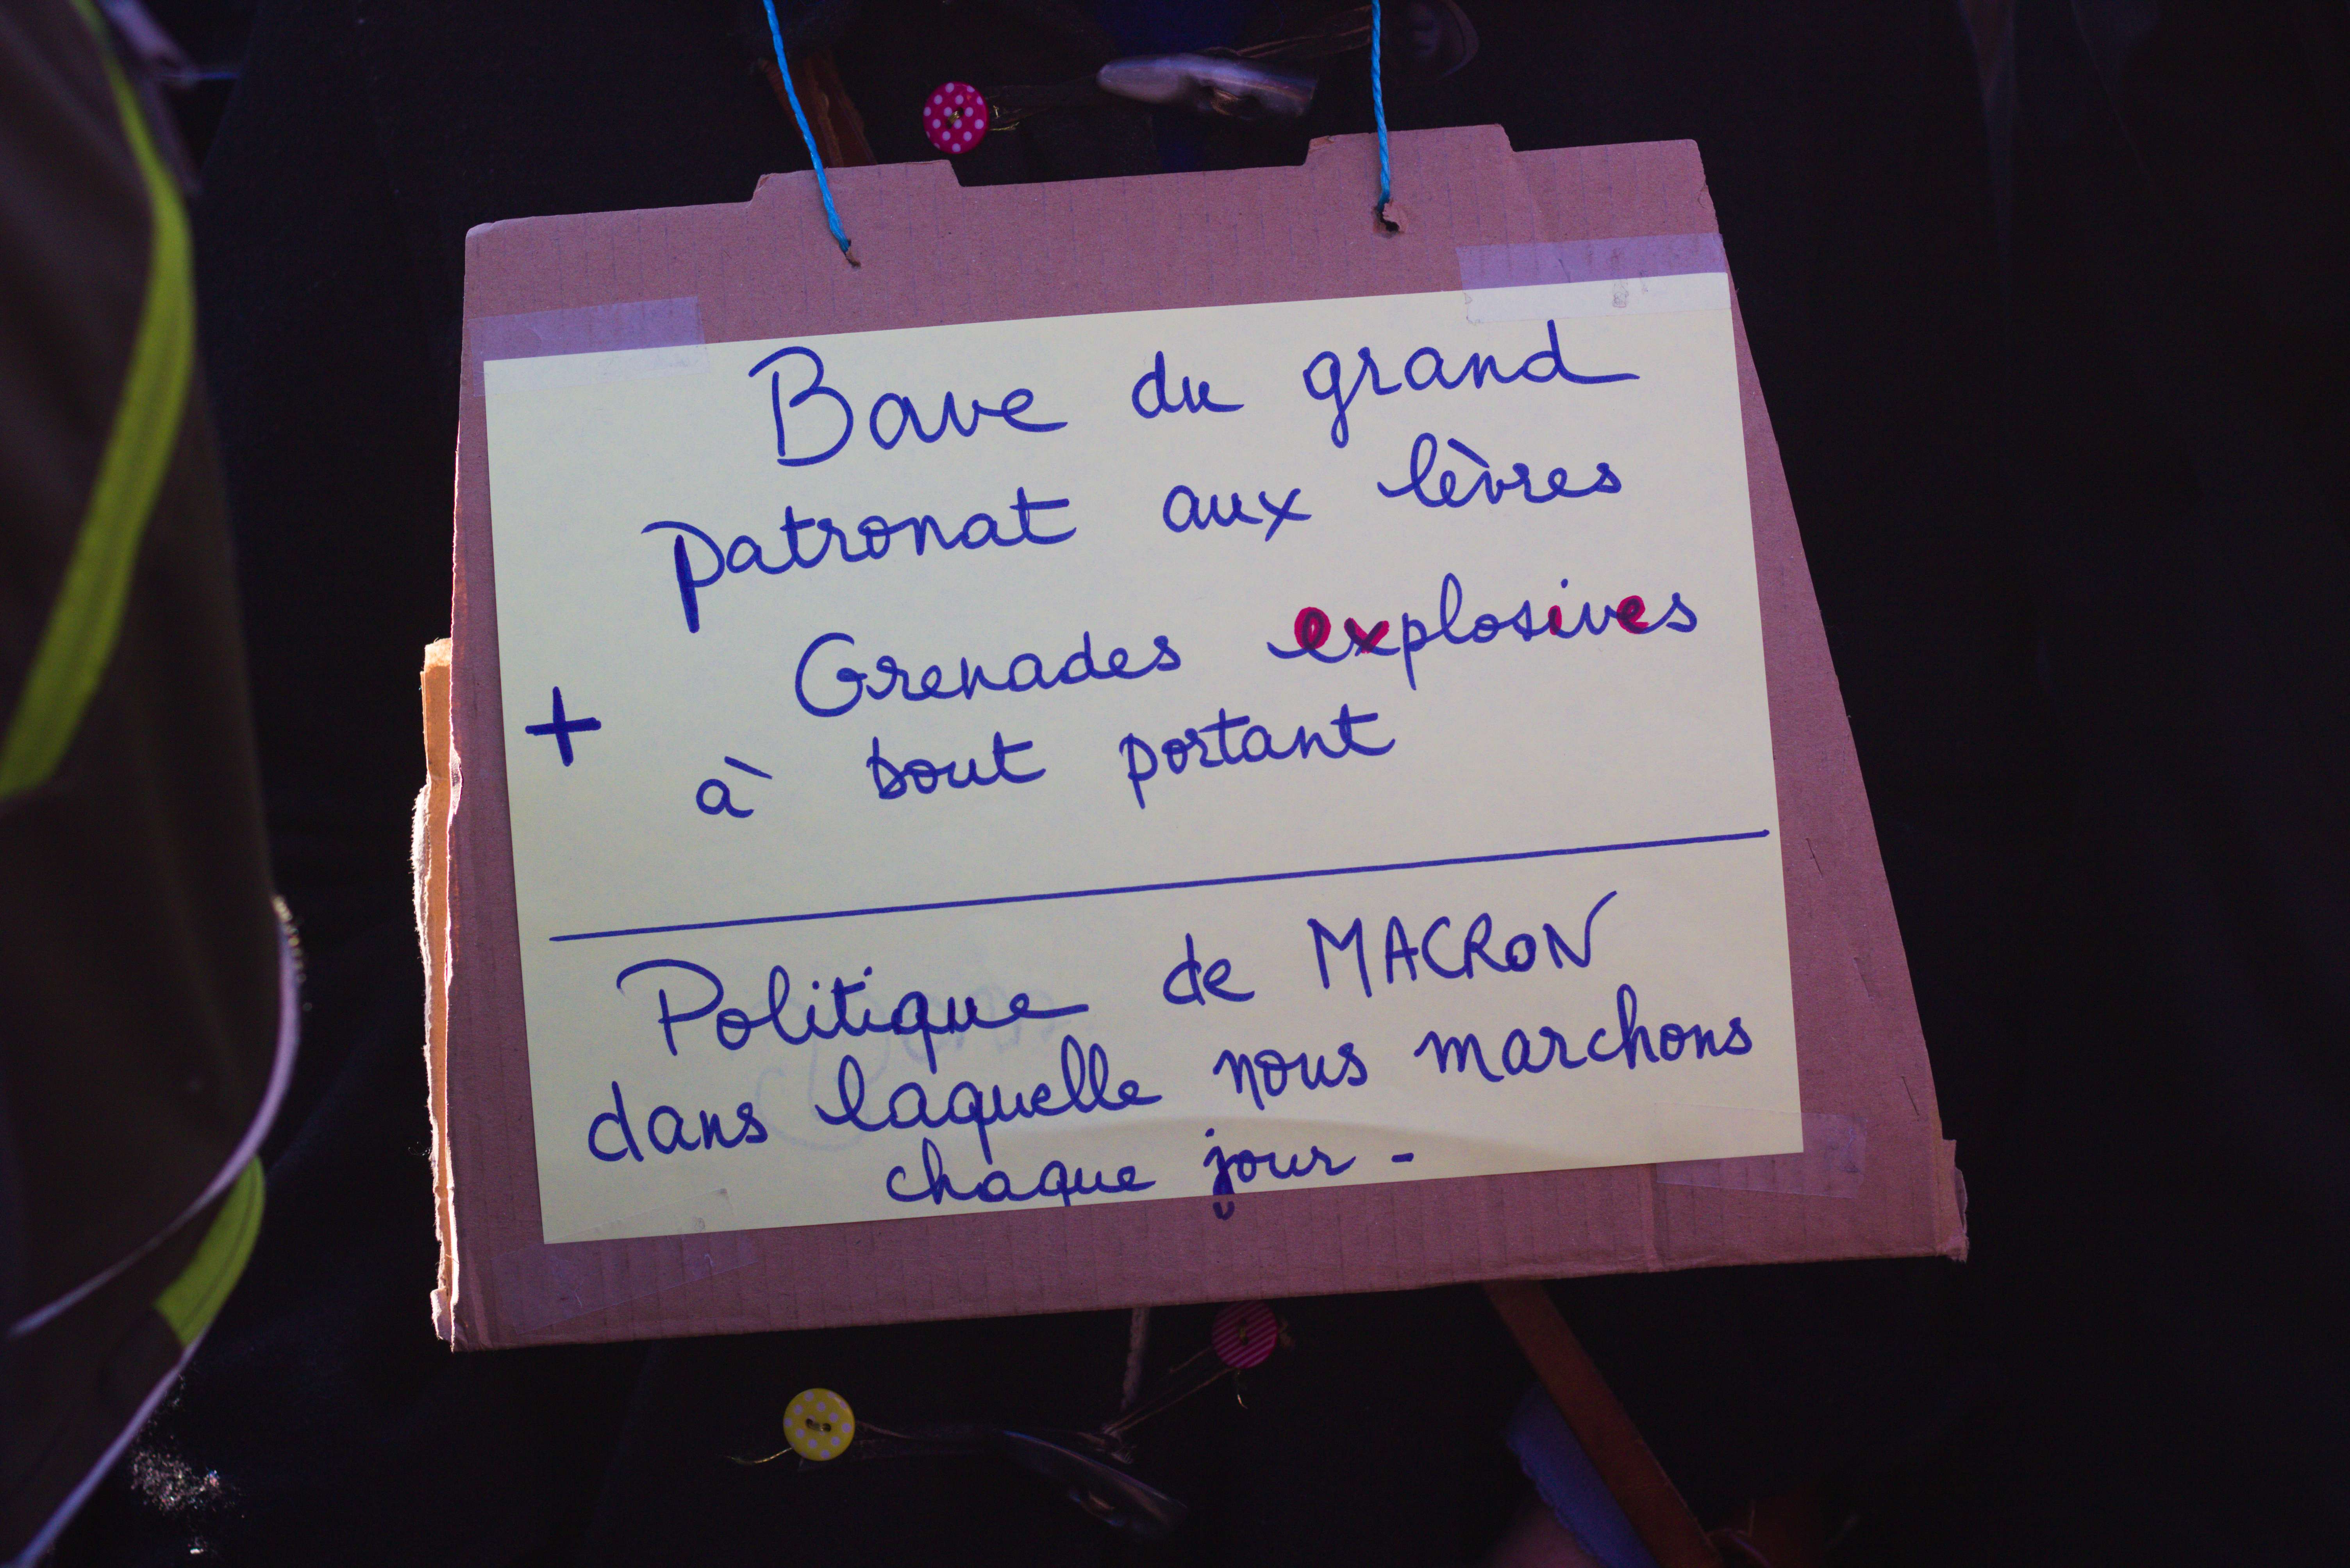 Bave du grand
patronat aux lèvres
+ Grenades explosives
à bout portant
Politique de MACRON
dans laquelle nous marchons
chaque jour -